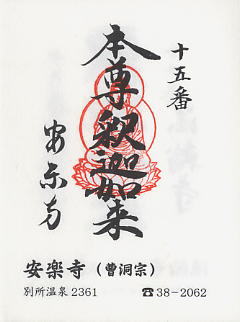 十五番
本尊釈迦如来
安楽寺
安楽寺（曹洞宗）
別所温泉2361 ☎38-2062